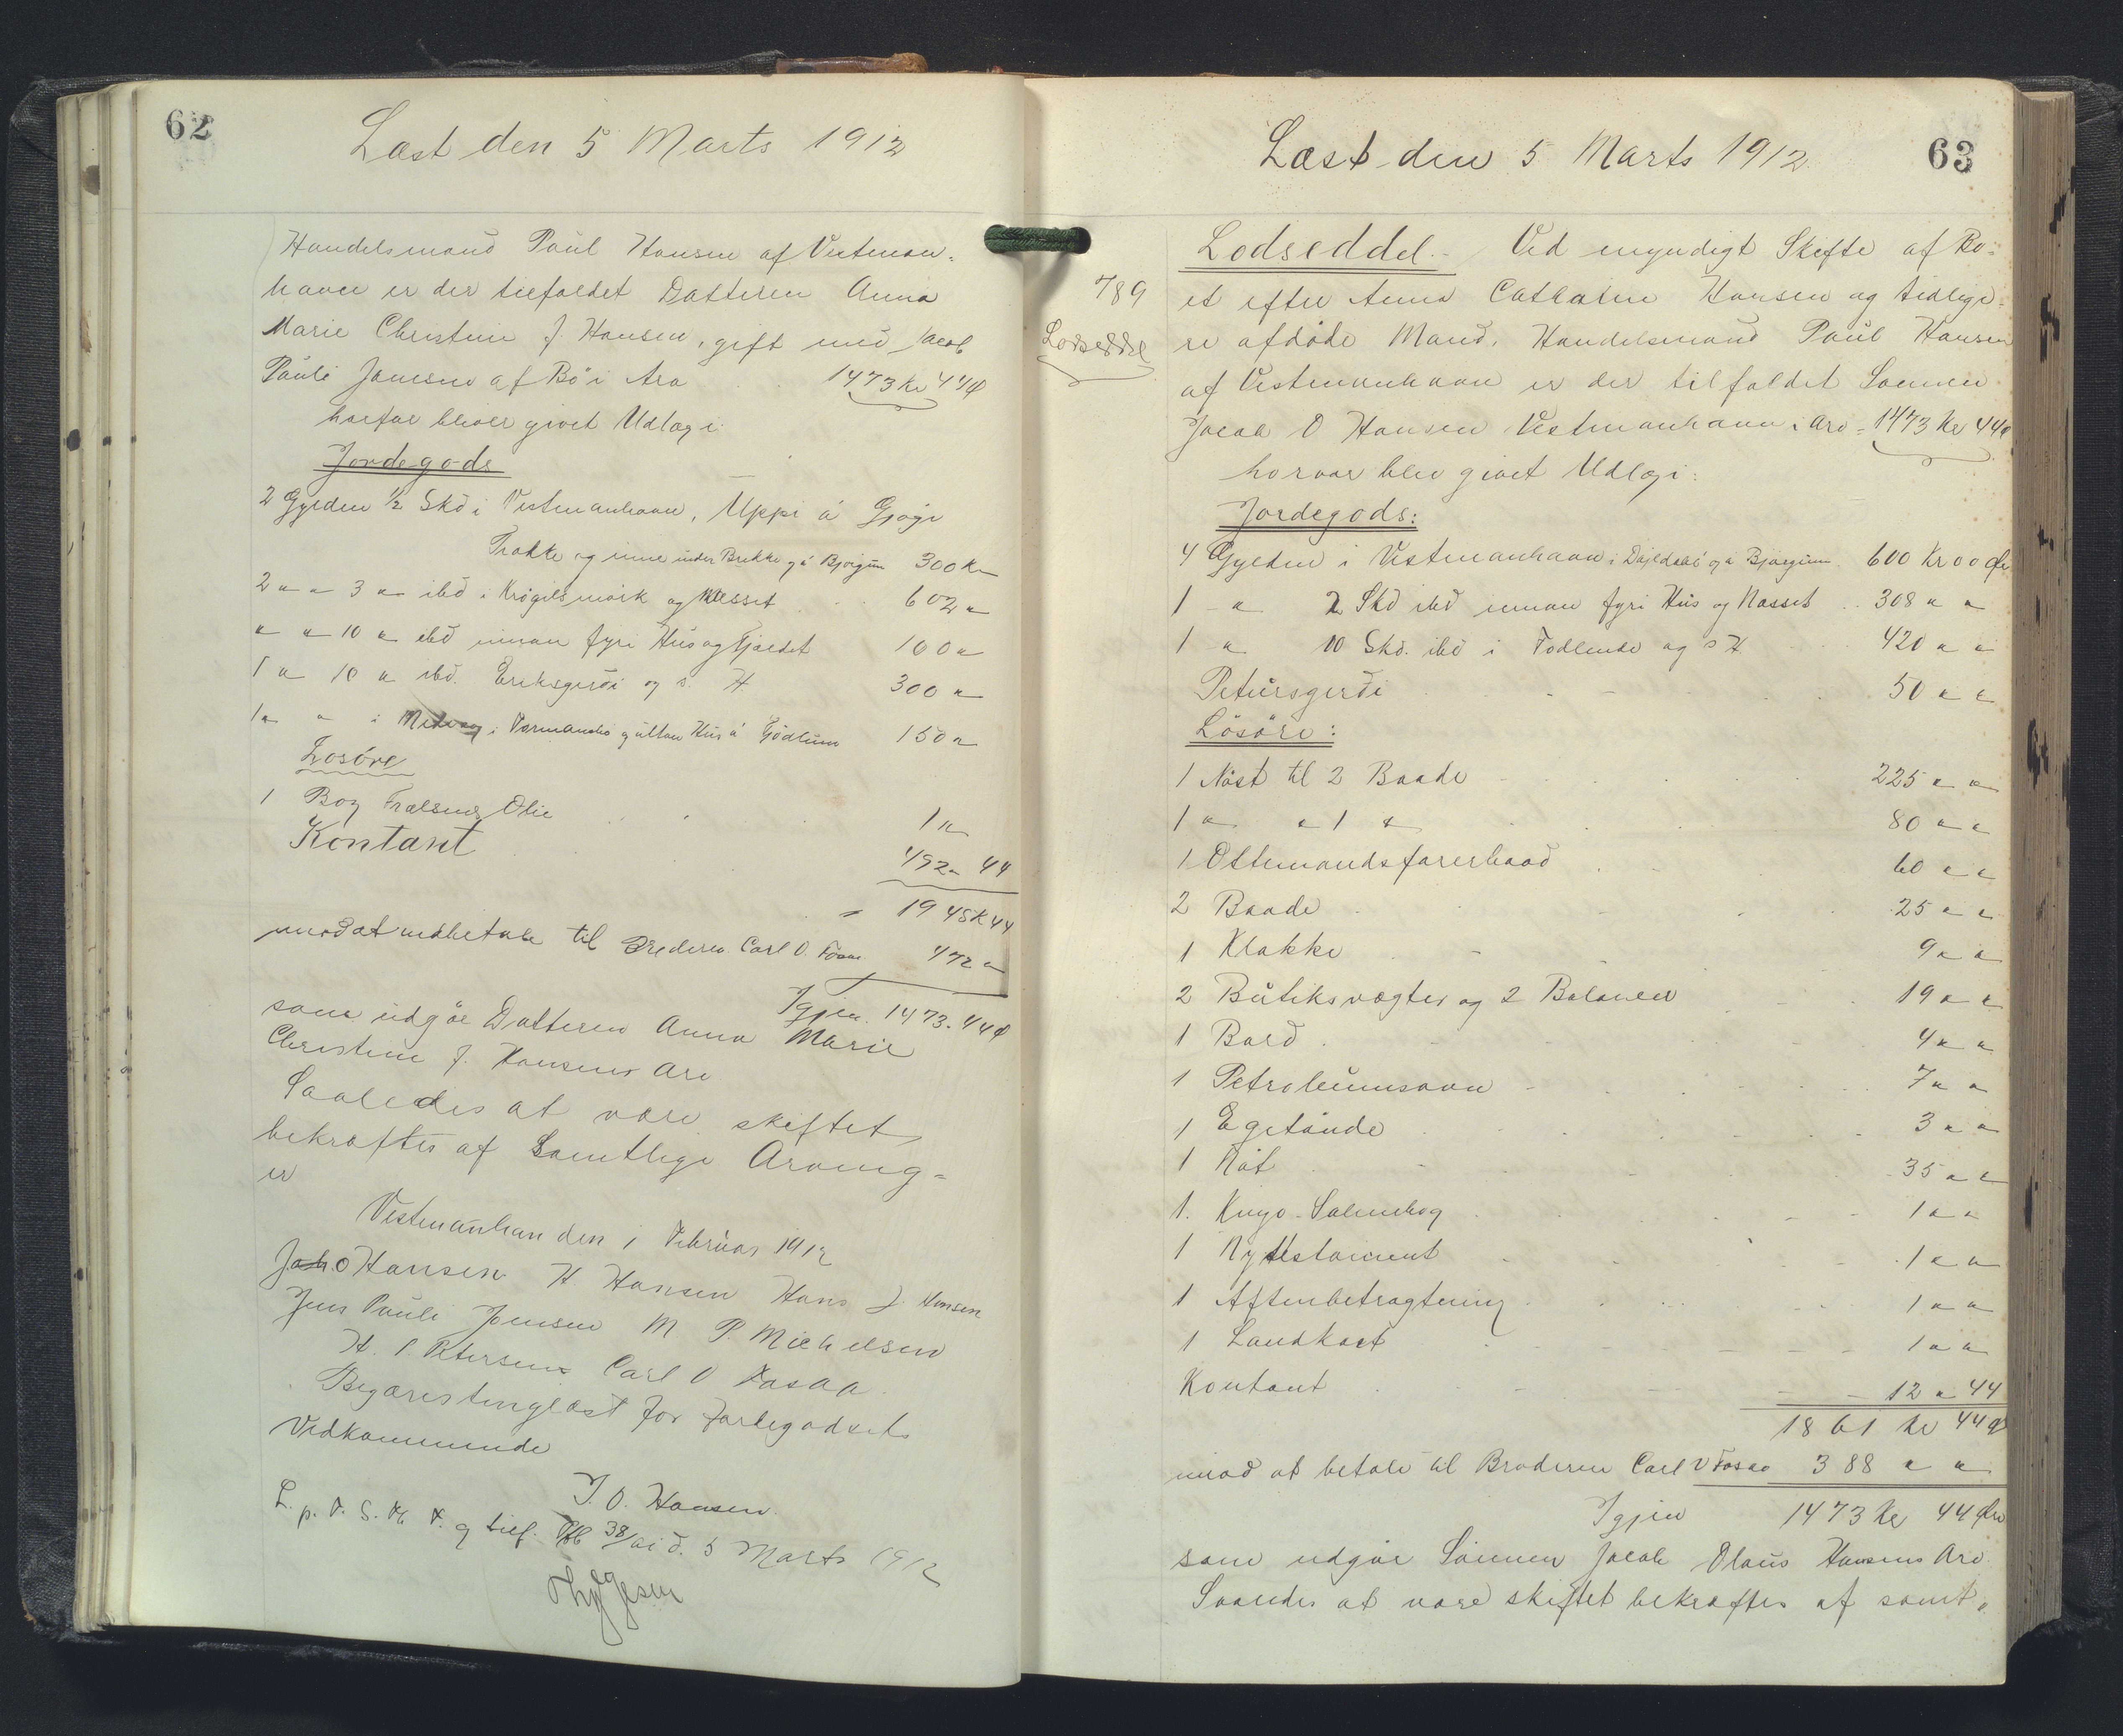 62
Læst den 5 Marts 1912
Handelsmand Paul Hansen af Vestman-
havn er der tilfaldet Datteren Anna
Marie Christine J. Hansen, gift med Jacob
Pauli Joensen af Bö i Arv 1473 Kr 44 Ø
hvorfor bliver givet Udlæg i
Jordegods
2 Gylden ½ Skd i Vestmanhavn, Uppi á Gjógv
Trøkke og inne under Brekke og á Bjørgum 300 Kr
2 " " 3 " ibd i Krógilsmørk og Nesset 602 "
" " 10 " ibd innan fyri Hús og Fjaldet 100 "
1 " 10 " ibd. Eriksgerði og s. H 300 "
1 " " i uttan Hús á 150 "
Losöre
1 Bog Frælsens Olie 1 "
Kontant 492 " 44
= 1945 K 44
mod at udbetale til Broderen Carl O. Fosaa 472 "
Igjen 1473 - 44 Ø
som udgör Datteren Anna Marie
Christine J. Hansens Arv
Saaledes at være skiftet
bekræftes af Samtlige Arving-
er
Vestmanhavn den 1 Februar 1912
Jah. O Hansen H. Hansen Hans J. Hansen
Jens Pauli Joensen M P. Michelsen
H. P. Petersen Carl O Fosaa
Begæres tinglæst for Jordegodsets
Vedkommende
J. O. Hansen
L. p. V. S. Th. F. og tilf. Pfb 38/ai d. 5 Marts 1912
Thygesen
63
Læst den 5 Marts 1912
789
Lodseddel
Lodseddel. - Ved myndigt Skifte af Bo-
et efter Anna Cathatrine Hansen og tidlige-
re afdöde Mand, Handelsmand Paul Hansen
af Vestmanhavn er der tilfaldet Sönnen
Jacob O Hansen Vestmanhavn i Arv = 1473 Kr 44 Ø
hvorvor blev givet Udlæg i:
Jordegods:
4 Gylden i Vestmanhavn i og á Bjørgum 600 Kr 00 Øre
1 " 2 Skd ibd innan fyri Hús og Nasset 308 " "
1 " 10 Skd. ibd i Fodlende og s H 420 " "
Petursgerði 50 " "
Lösöre:
1 Nöst til 2 Baade 225 " "
1 " " 1 " 80 " "
1 Ottemandsfarerbaad 60 " "
2 Baade 25 " "
1 Klakke 9 " "
2 Butiksvægter og 2 Balancer 19 " "
1 Bord 4 " "
1 Petroleumsovn 7 " "
1 Egetønde 3 " "
1 Nót 35 " "
1. Kingo-Salmebog 1 " "
1 Nytestament 1 " "
1 Aftenbetragtning 1 " "
1 Landkort 1 " "
Kontant 12 " 44
1861 Kr 44 Ø
mod at betale til Broderen Carl O Fosaa 388 " "
Igjen 1473 Kr 44 Øre
som udgör Sönnen Jacob Olaus Hansens Arv
Saaledes at være skiftet bekræftes af samt-